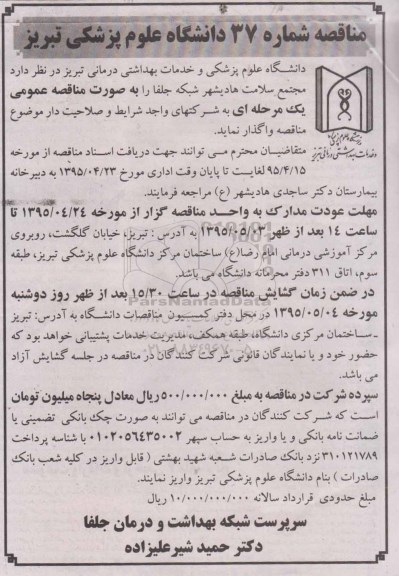 مناقصه شماره ۳۷ دانشگاه علوم پزشکی تبریز
دانشگاه علوم پزشکی و خدمات بهداشتی درمانی تبریز در نظر دارد
مجتمع سلامت هادیشهر شبکه جلفا را به صورت مناقصه عمومی
یک مرحله ای به شرکتهای واجد شرایط و صلاحیت دار موضوع
مناقصه واگذار نماید.
متقاضیان محترم می توانند جهت دریافت اسناد مناقصه از مورخه
۹۵/۴/۱۵ لغایت تا پایان وقت اداری مورخ ۱۳۹۵/۰۴/۲۳ به دبیرخانه
بیمارستان دکتر ساجدی هادیشهر (ع) مراجعه فرمایند.
مهلت عودت مدارک به واحد مناقصه گزار از مورخه ۱۳۹۵/۰۴/۲۴ تا
ساعت ۱۴ بعد از ظهر ۱۳۹۵/۰۵/۰۳ به آدرس : تبریز، خیابان گلگشت، روبروی
مرکز آموزشی درمانی امام رضا(ع) ساختمان مرکز دانشگاه علوم پزشکی تبریز، طبقه
سوم، اتاق ۳۱۱ دفتر محرمانه دانشگاه می باشد.
در ضمن زمان گشایش مناقصه در ساعت ۱۵/۳۰ بعد از ظهر روز دوشنبه
مورخه ۱۳۹۵/۰۵/۰۴ در محل دفتر کمیسیون مناقصات دانشگاه به آدرس: تبریز
ـ ساختمان مرکزی دانشگاه، طبقه همکف، مدیریت خدمات پشتیبانی خواهد بود که
حضور خود و یا نمایندگان قانونی شرکت کنندگان در مناقصه در جلسه گشایش آزاد
می باشد.
سپرده شرکت در مناقصه به مبلغ ۵۰۰/۰۰۰/۰۰۰ ریال معادل پنجاه میلیون تومان
است که شرکت کنندگان در مناقصه می توانند به صورت چک بانکی تضمینی یا
ضمانت نامه بانکی و یا واریز به حساب سپهر ۰۱۰۲۰۵۶۴۳۵۰۰۲ با شناسه پرداخت
۳۱۰۱۲۱۷۸۹ نزد بانک صادرات شعبه شهید بهشتی ( قابل واریز در کلیه شعب بانک
صادرات ) بنام دانشگاه علوم پزشکی تبریز واریز نمایند.
مبلغ حدودی قرارداد سالانه ۱۰/۰۰۰/۰۰۰/۰۰۰ ریال
سرپرست شبکه بهداشت و درمان جلفا
دکتر حمید شیرعلیزاده
ParsNamadData